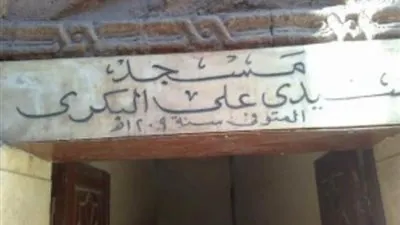 مسجد
سيدى على البكرى
المتوفى سنة ١٢٠٩ﻫ